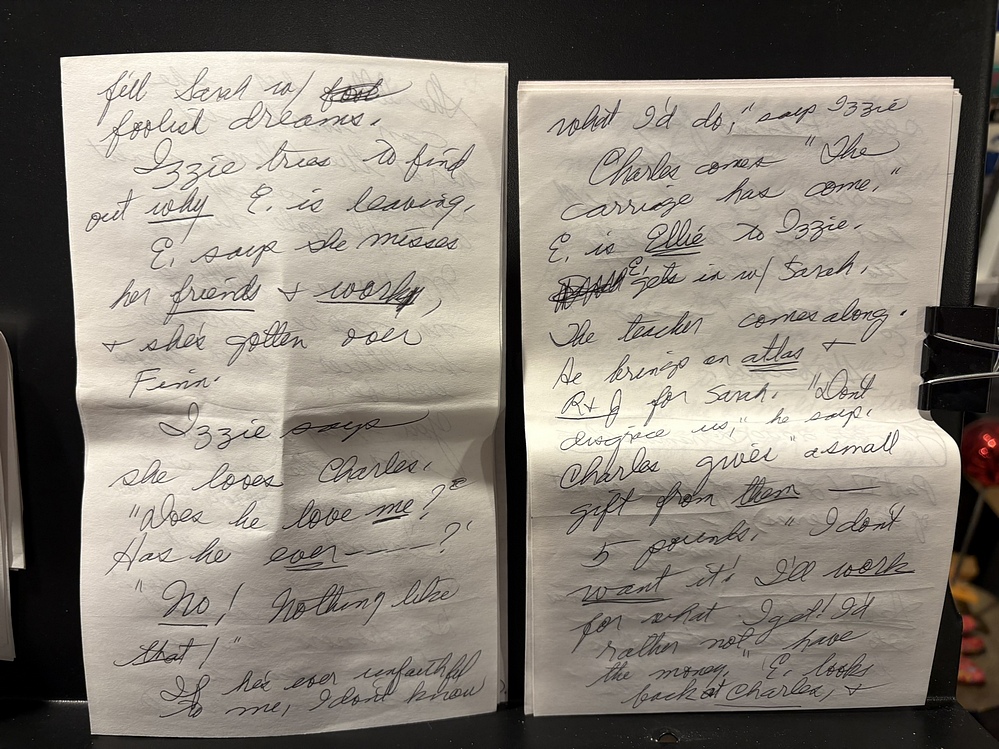 fill Sarah w/ foot
foolish dreams.
Izzie tries to find
out why E. is leaving.
E. says she misses
her friends & work,
& she's gotten over
Finn.
Izzie says
she loves Charles.
"Does he love me?"
Has he ever ----?"
"No! Nothing like
that!"
If he's ever unfaithful
to me, I don't know
what I'd do," says Izzie
Charles comes "The
carriage has come."
E. is Ellie to Izzie.
E. gets in w/ Sarah.
The teacher comes along.
He brings an atlas &
R & J for Sarah. "Don't
disgrace us," he says.
Charles gives "a small
gift from them —
5 pounds." I don't
want it! I'll work
for what I get! I'd
rather not have
the money." E. looks
back at Charles, &